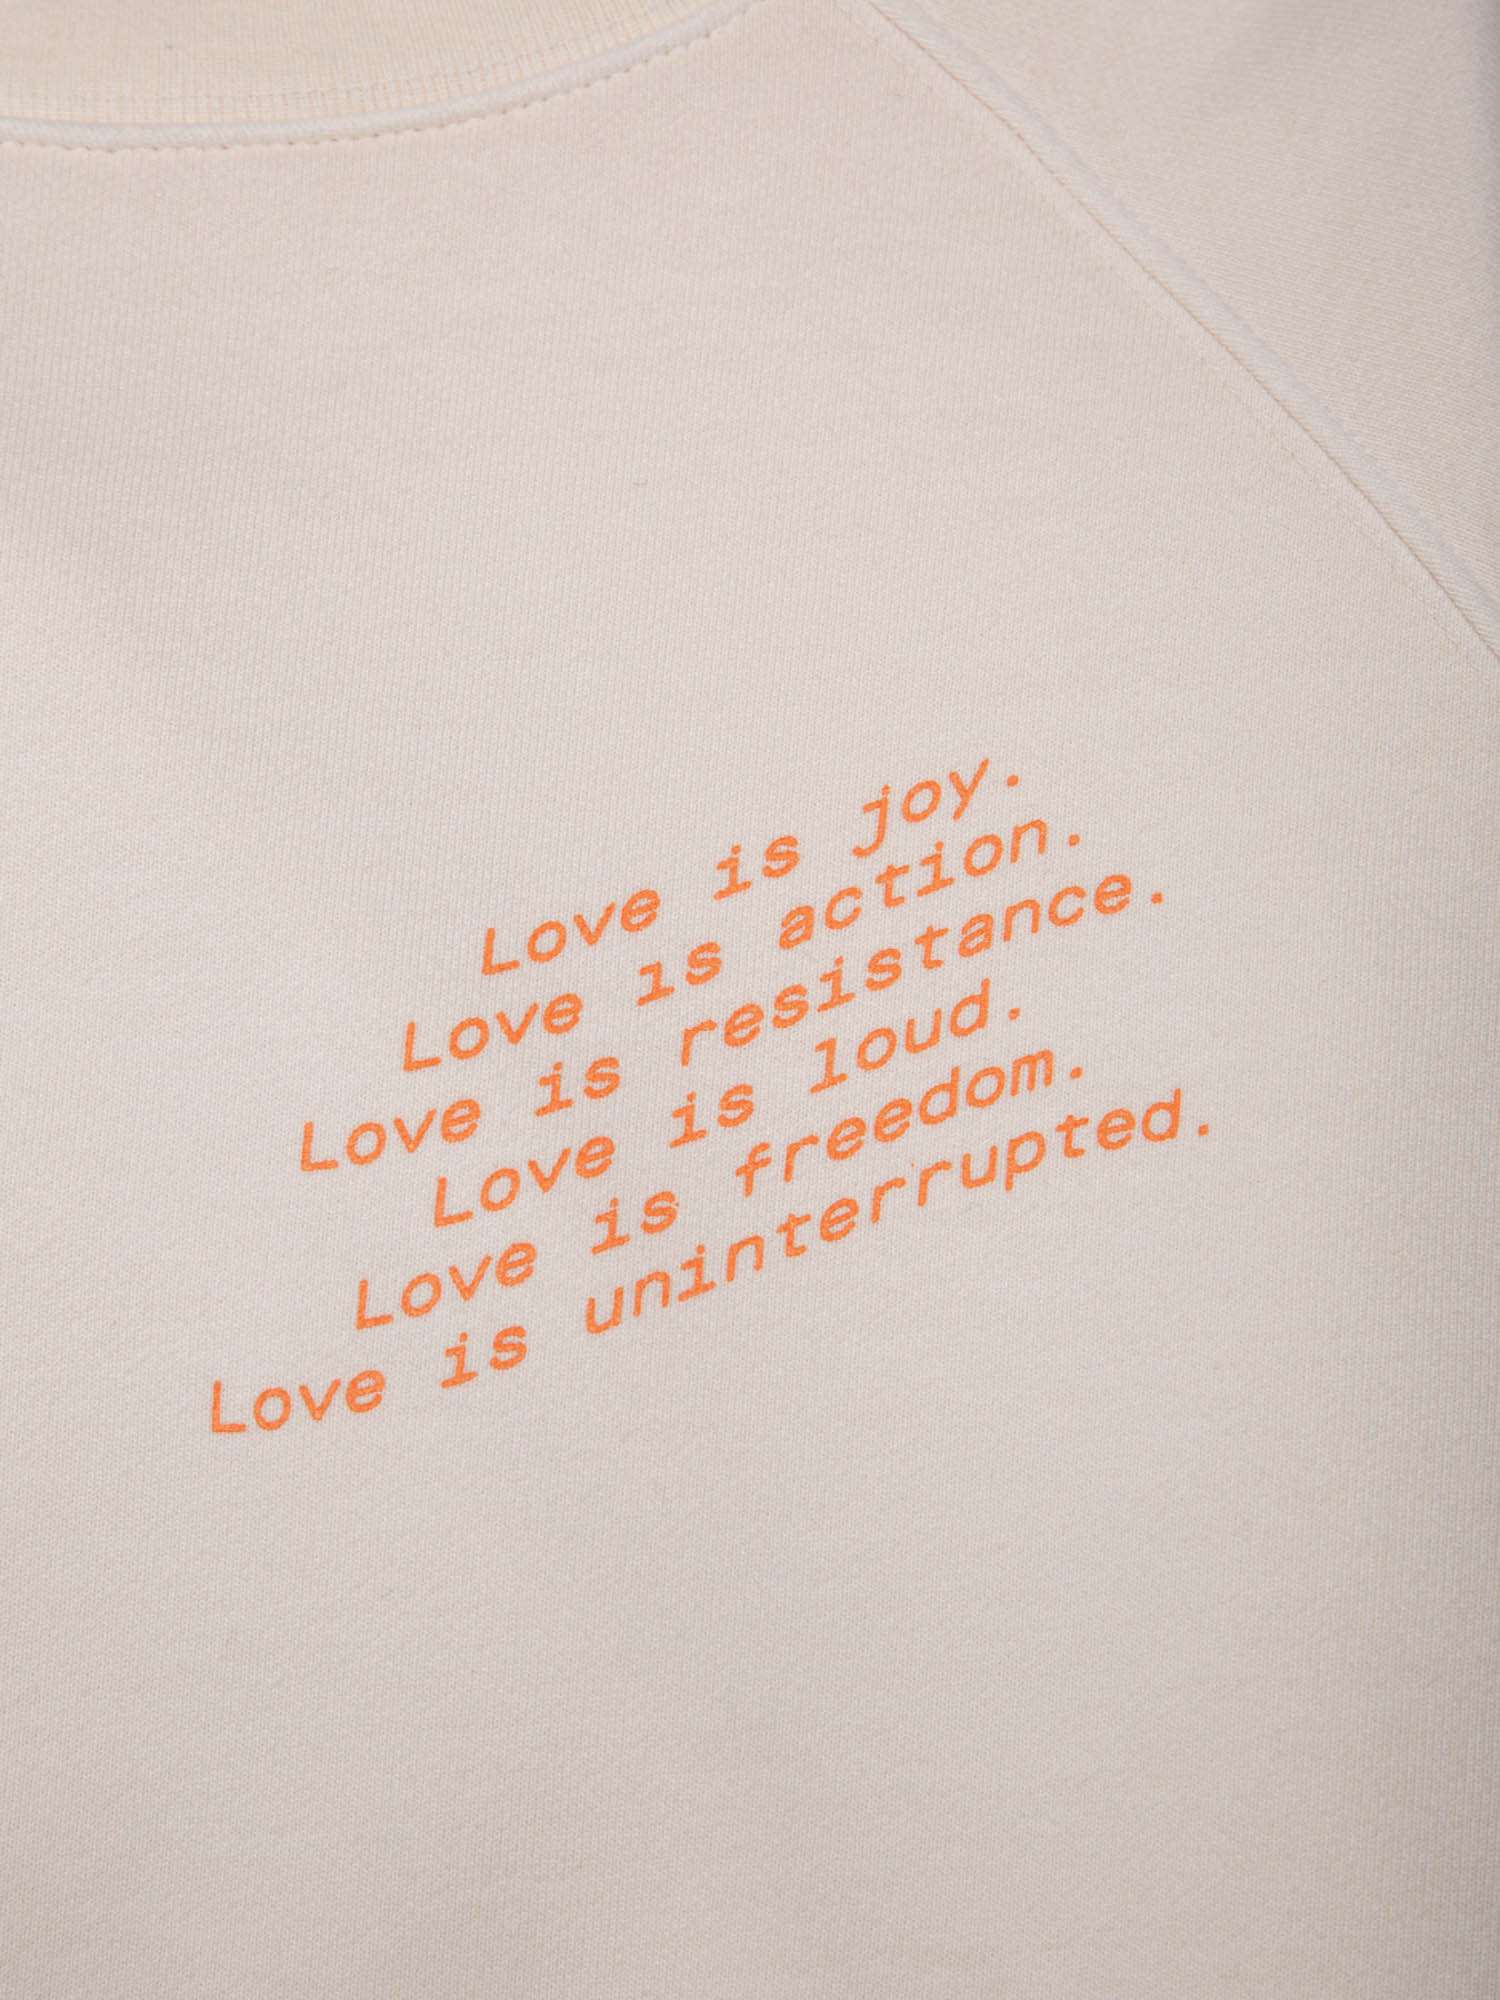 Love is joy.
Love is action.
Love is resistance.
Love is loud.
Love is freedom.
Love is uninterrupted.